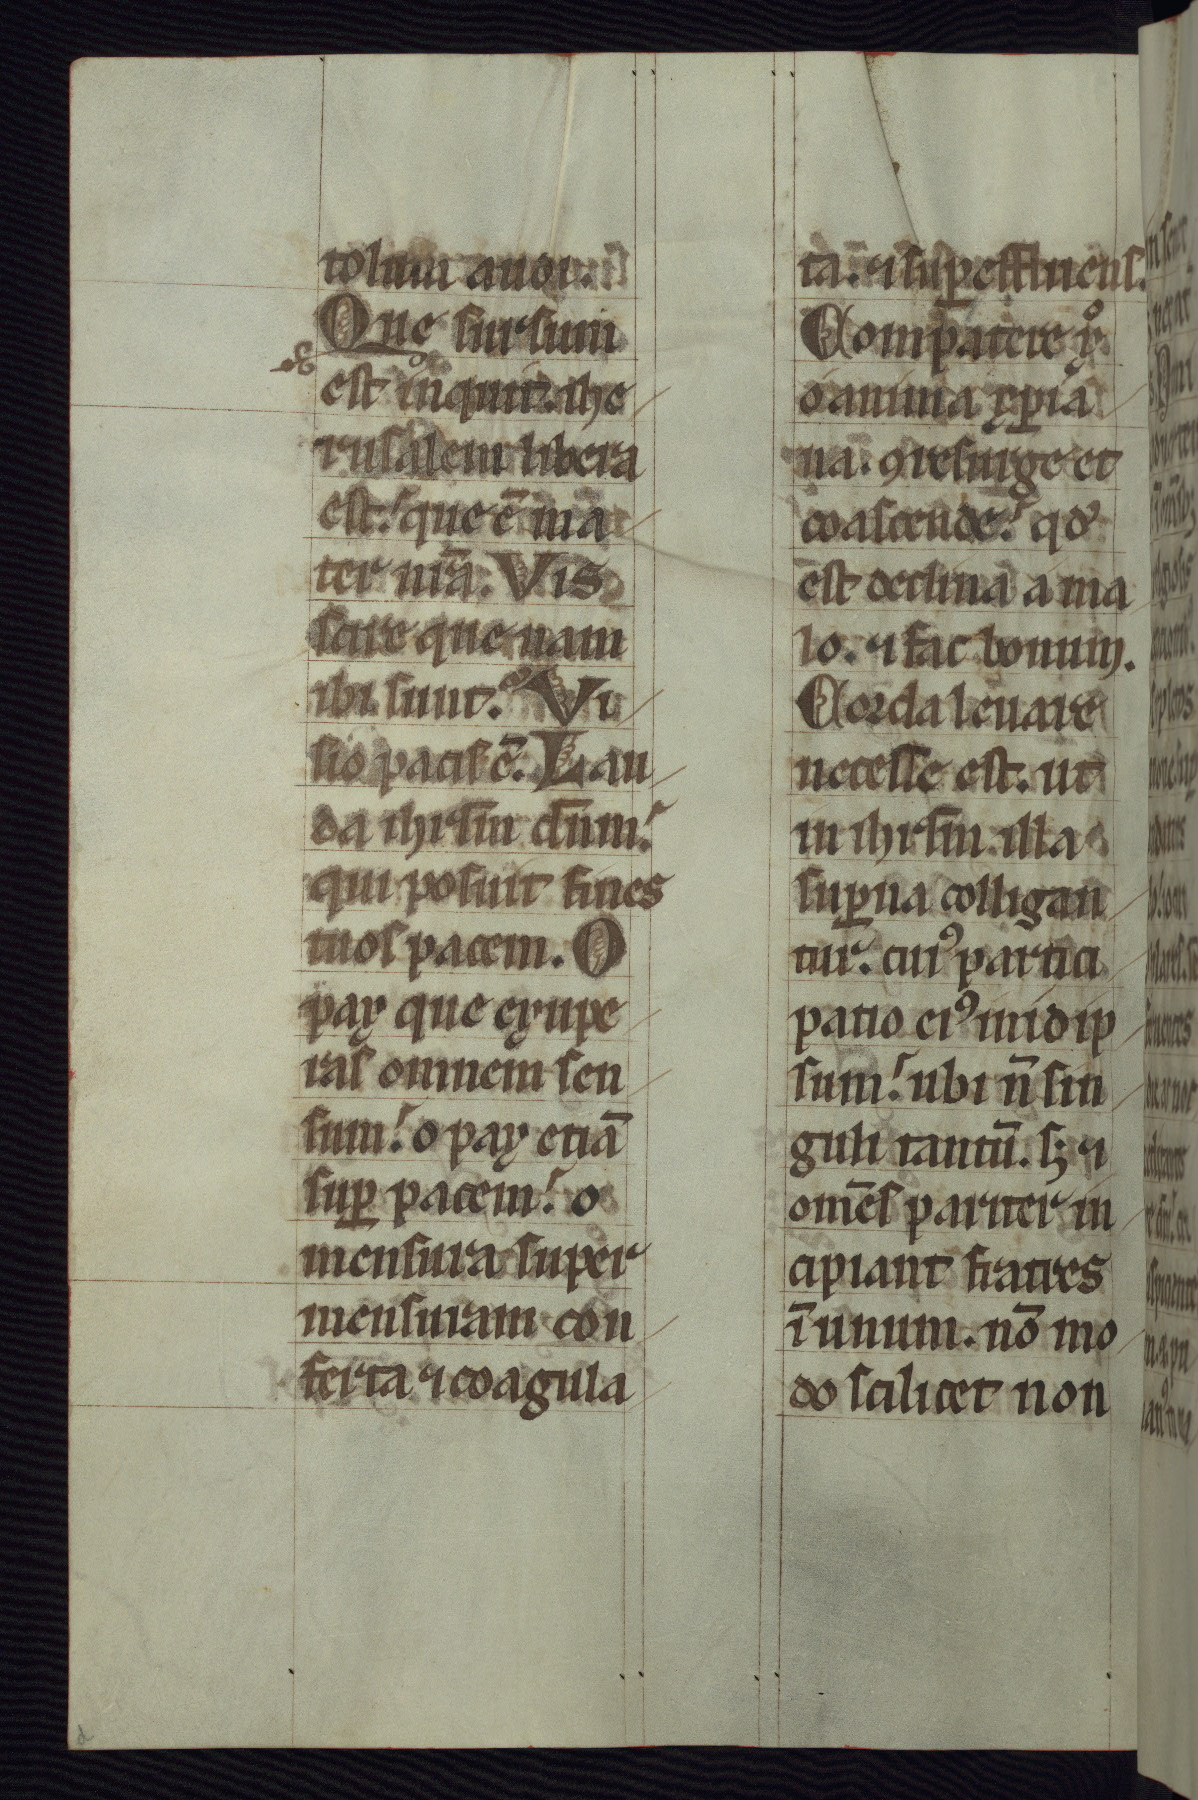 tolum audi.
Que sursum
est inquit. ihe
rusalem libera
est: que ē ma
ter nr̄a. Vis
scire que nam
ibi sunt? Vi
sio pacis ē. Lau
da ihrl̄m dn̄m:
qui posuit fines
tuos pacem. O
pax que exupe
ras omnem sen
sum: o pax etiā
suꝑ pacem: o
mensura super
mensuram con
ferta ⁊ coagula
ta. ⁊ suꝑeffluens.
Compatere gͦ
o anima xp̄ia
na. ꝯresurge et
coascende: qd'
est declina a ma
lo. ⁊ fac bonum.
Corda leuare
necesse est. ut
in ihrl̄m illa
suꝑna colligan
tur. cuiꝰ partici
patio eiꝰ in idip
sum: ubi n̄ sin
guli tantū. sꝫ ⁊
om̄es pariter in
cipiant fratres
ī unum. nō mo
do scilicet non